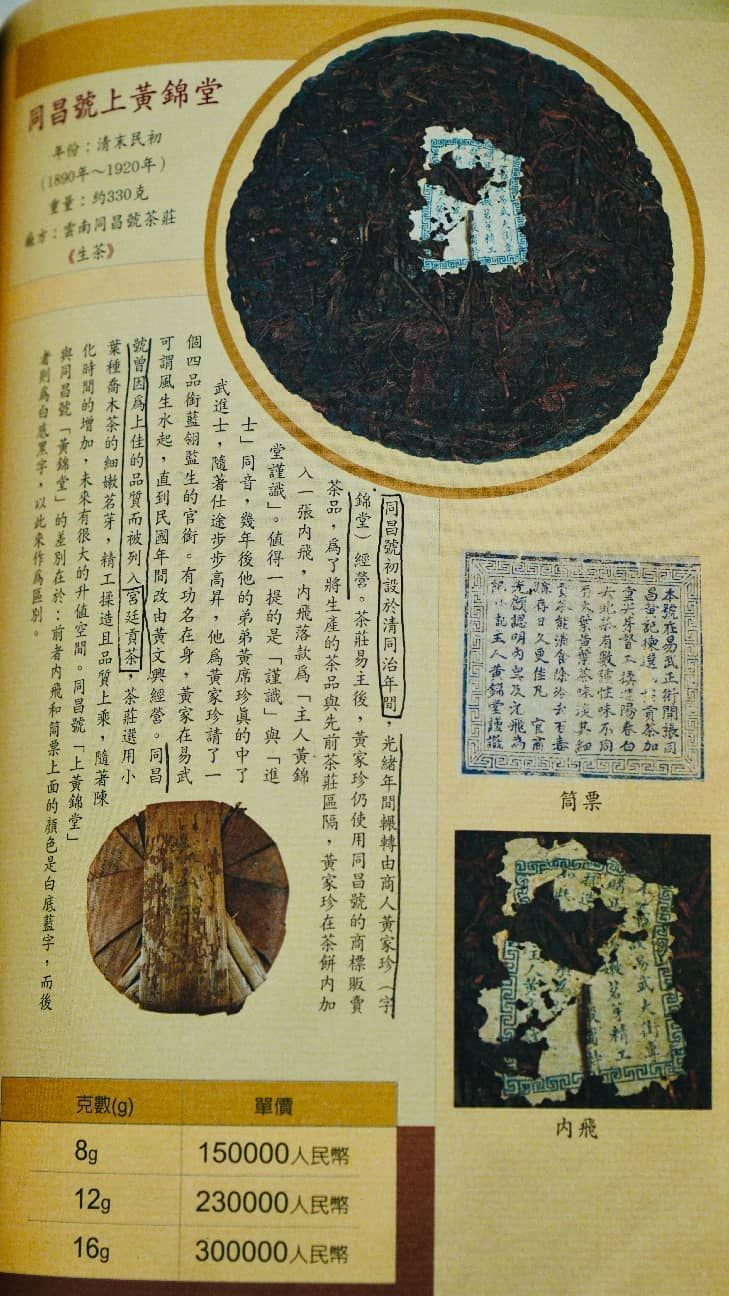 同昌號上黃錦堂
年份：清末民初
（1890年～1920年）
重量：約330克
方：雲南同昌號茶莊
《生茶》
易武大街
茗芽精工
同昌號初設於清同治年間，光緒年間輾轉由商人黃家珍（字
錦堂）經營。茶莊易主後，黃家珍仍使用同昌號的商標販賣
茶品，為了將生產的茶品與先前茶莊區隔，黃家珍在茶餅內加
入一張內飛，內飛落款為「主人黃錦
堂謹識」。值得一提的是「謹識」與「進
士」同音，幾年後他的弟弟黃席珍真的中了
武進士，隨著仕途步步高昇，他為黃家珍請了一
個四品銜藍翎監生的官銜。有功名在身，黃家在易武
可謂風生水起，直到民國年間改由黃文興經營。同昌
號曾因為上佳的品質而被列入宮廷貢茶，茶莊選用小
葉種喬木茶的細嫩茗芽，精工揉造且品質上乘，隨著陳
化時間的增加，未來有很大的升值空間。同昌號「上黃錦堂」
與同昌號「黃錦堂」的差別在於：前者內飛和筒票上面的顏色是白底藍字，而後
者則為白底黑字，以此來作為區別。
本號在易武正街開張同
昌號記揀選貢茶加
重尖芽督工揉造陽春白
有數種性味不同
大葉黃葉茶味淡其細
能消食除
存日久更佳凡官商
光顧認明內與及內飛為
記主人黃錦堂謹識
筒票
易武大街
茗芽精工
揉造
主人黃
內飛
克數(g) 單價
8g 150000人民幣
12g 230000人民幣
16g 300000人民幣